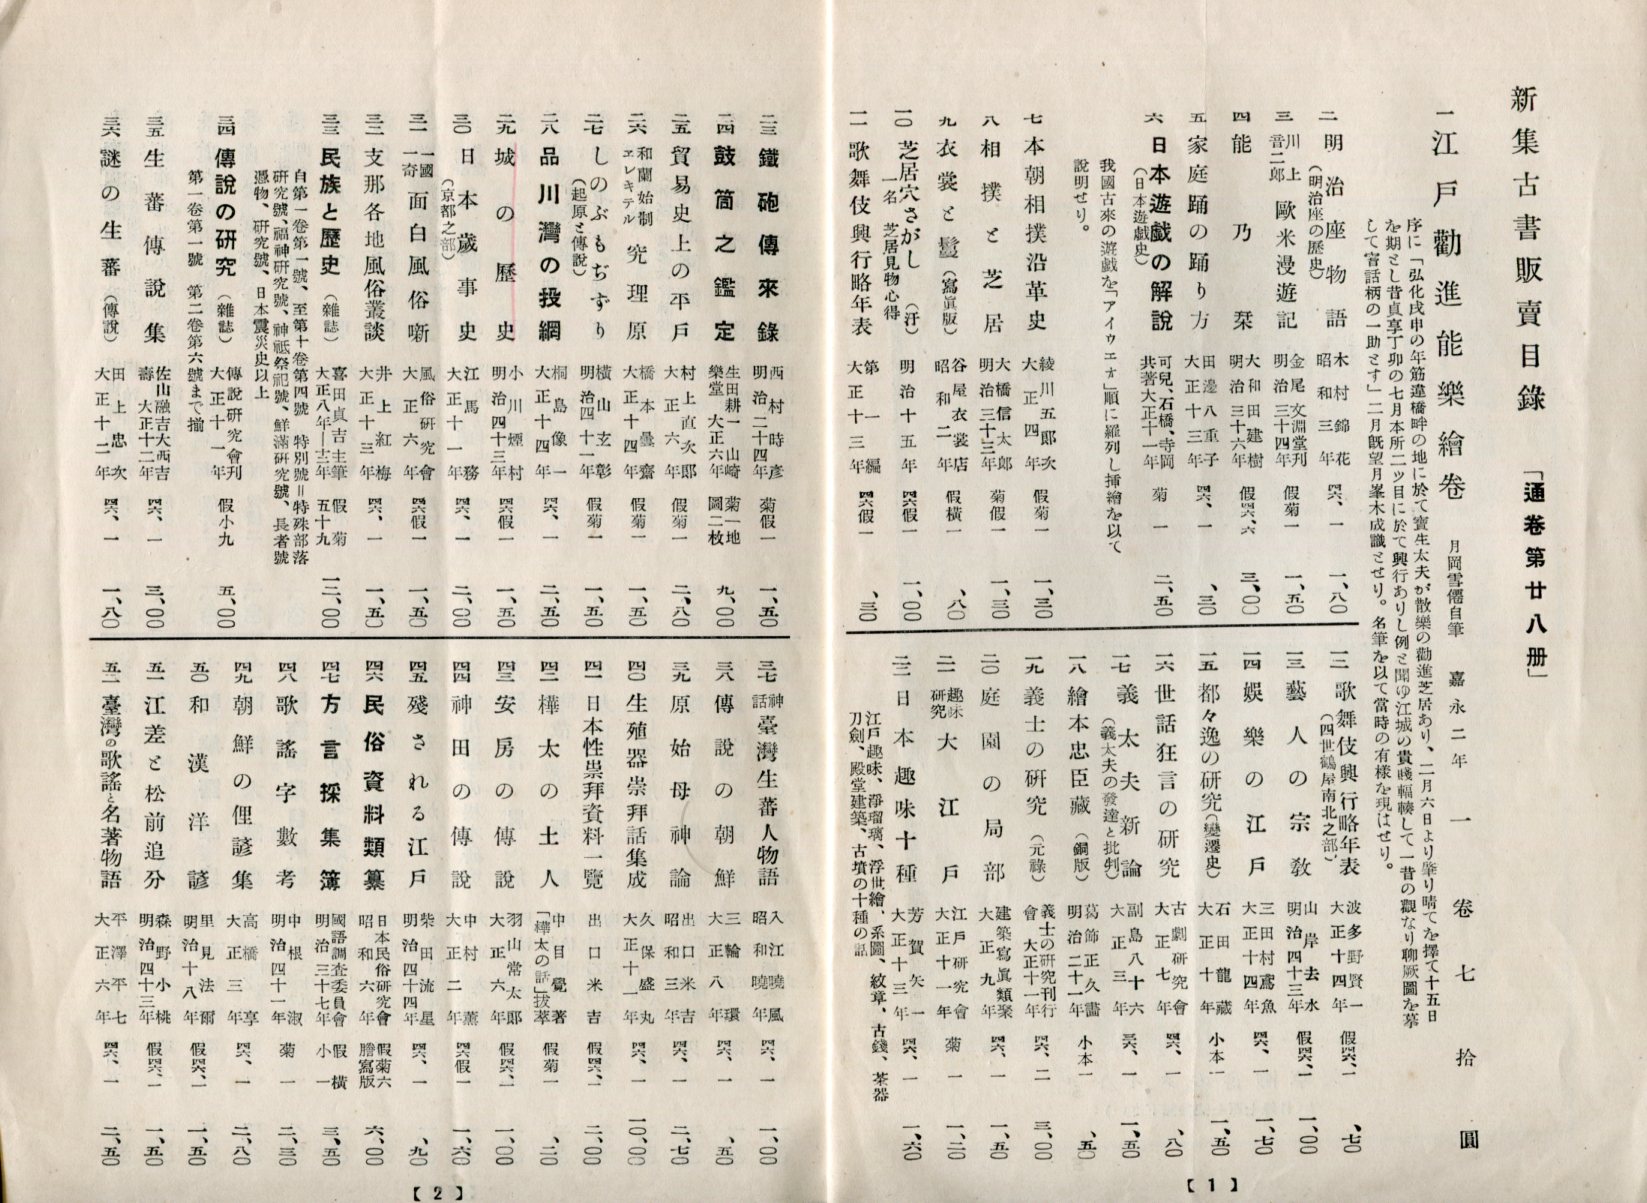 新集古書販賣目錄 「通卷第廿八册」
一 江戸勸進能樂繪卷 月岡雪僊自筆 嘉永二年 一卷 七拾圓
序に「弘化戌申の年筋違橋畔の地に於て寳生太夫が散樂の勸進芝居あり、二月六日より肇り晴てを擇て十五日
を期とし昔貞享丁卯の七月本所二ツ目に於て興行ありし例と聞ゆ江城の貴賤輻輳して一昔の觀なり聊厥圖を摹
して寄話柄の一助とす」二月旣望月峯木成識とせり。名筆を以て當時の有樣を現はせり。
二 明治座物語 木村錦花 昭和三年 四六、一 一、八〇
(明治座の歷史)
三 川上音二郎 歐米漫遊記 金尾文淵堂刊 明治三十四年 假菊一 一、五〇
四 能乃栞 大和田建樹 明治三十六年 假四六、六 三、〇〇
五 家庭踊の踊り方 田邊八重子 大正十三年 四六、一 、三〇
六 日本遊戲の解說 可兒、石橋、寺岡共著 大正十一年 菊一 二、五〇
(日本遊戲史)
我國古來の遊戲を「アイウエオ」順に羅列し挿繪を以て
說明せり。
七 本朝相撲沿革史 綾川五郎次 大正四年 假菊一 一、三〇
八 相撲と芝居 大橋信太郎 明治三十三年 菊假一 一、三〇
九 衣裳と鬘(寫眞版) 谷屋衣裳店 昭和二年 假橫一 、八〇
一〇 芝居穴さがし(汗) 明治十五年 四六假一 一、〇〇
一名 芝居見物心得
一一 歌舞伎興行略年表 第一編 大正十三年 四六假一 、三〇
一二 歌舞伎興行略年表 波多野賢一 大正十四年 假四六、一 、七〇
(四世鶴屋南北之部)
一三 藝人の宗敎 山岸去水 明治四十三年 假四六、一 一、〇〇
一四 娛樂の江戸 三田村鳶魚 大正十四年 四六、一 一、七〇
一五 都々逸の硏究(變遷史) 石田龍藏 大正十年 小本一 一、五〇
一六 世話狂言の硏究 古劇硏究會 大正七年 四六、一 、八〇
一七 義太夫新論 副島八十六 大正三年 三六、一 一、五〇
(義太夫の發達と批判)
一八 繪本忠臣藏(銅版) 葛飾正久畵 明治二十一年 小本一 、五〇
一九 義士の硏究(元祿) 義士の硏究刊行會 大正十一年 四六、二 三、〇〇
二〇 庭園の局部 建築寫眞類聚 大正九年 四六、一 一、五〇
二一 趣味硏究 大江戸 江戸硏究會 大正十一年 菊一 一、二〇
二二 日本趣味十種 芳賀矢一 大正十三年 四六、一 一、六〇
江戸趣味、淨瑠璃、浮世繪、系圖、紋章、古錢、茶器
刀劍、殿堂建築、古墳の十種の話
【1】
二三 鐵砲傳來錄 西村時彥 明治二十四年 菊假一 一、五〇
二四 鼓筒之鑑定 生田耕一 山崎樂堂 大正六年 菊一地圖二枚 九、〇〇
二五 貿易史上の平戸 村上直次郎 大正六年 假菊一 二、八〇
二六 和蘭始制ヱレキテル 究理原 橋本曇齋 大正十四年 假菊一 一、五〇
二七 しのぶもぢずり 橫山玄彰 明治四十一年 假菊一 一、五〇
(起原と傳說)
二八 品川灣の投網 桐島像一 大正十四年 假菊一 二、五〇
二九 城の歷史 小川煙村 明治四十三年 四六假一 一、五〇
三〇 日本歲事史 江馬務 大正十一年 四六、一 二、〇〇
(京都之部)
三一 一國一奇 面白風俗噺 風俗硏究會 大正六年 四六假一 一、五〇
三二 支那各地風俗叢談 井上紅梅 大正十三年 四六、一 一、五〇
三三 民族と歷史(雜誌) 喜田貞吉主筆 大正八年—十二年 假菊五十九 一二、〇〇
自第一卷第一號、至第十卷第四號 特別號=特殊部落
硏究號、福神硏究號、神祗祭祀號、鮮滿硏究號、長者號
憑物、硏究號、日本震災史以上
三四 傳說の硏究(雜誌) 傳說硏究會刊 大正十一年 假小九 五、〇〇
第一卷第一號 第二卷第六號まで揃
三五 生蕃傳說集 佐山融吉大西吉壽 大正十二年 四六、一 三、〇〇
三六 謎の生蕃(傳說) 田上忠次 大正十二年 四六、一 一、八〇
三七 神話 臺灣生蕃人物語 入江曉風 昭和曉年 四六、一 一、〇〇
三八 傳說の朝鮮 三輪環 大正八年 四六、一 、五〇
三九 原始母神論 出口米吉 昭和三年 四六、一 二、七〇
四〇 生殖器崇拜話集成 久保盛丸 大正十一年 四六、一 一〇、〇〇
四一 日本性崇拜資料一覽 出口米吉 假四六、一 二、〇〇
四二 樺太の土人 中目覺著「樺太の話」拔萃 假菊一 、二〇
四三 安房の傳說 羽山常太郎 大正六年 假四六、一 一、〇〇
四四 神田の傳說 中村薰 大正二年 四六假一 一、六〇
四五 殘される江戸 柴田流星 明治四十四年 四六、一 、九〇
四六 民俗資料類纂 日本民俗硏究會 昭和六年 假菊六謄寫版 六、〇〇
四七 方言採集簿 國語調査委員會 明治三十七年 假橫小一 三、五〇
四八 歌謠字數考 中根淑 明治四十一年 菊一 二、三〇
四九 朝鮮の俚諺集 高橋亨 大正三年 四六、一 二、八〇
五〇 和漢洋諺 里見法爾 明治十八年 假四六、一 一、五〇
五一 江差と松前追分 森野小桃 明治四十三年 假四六、一 一、五〇
五二 臺灣の歌謠と名著物語 平澤平七 大正六年 四六、一 二、五〇
【2】